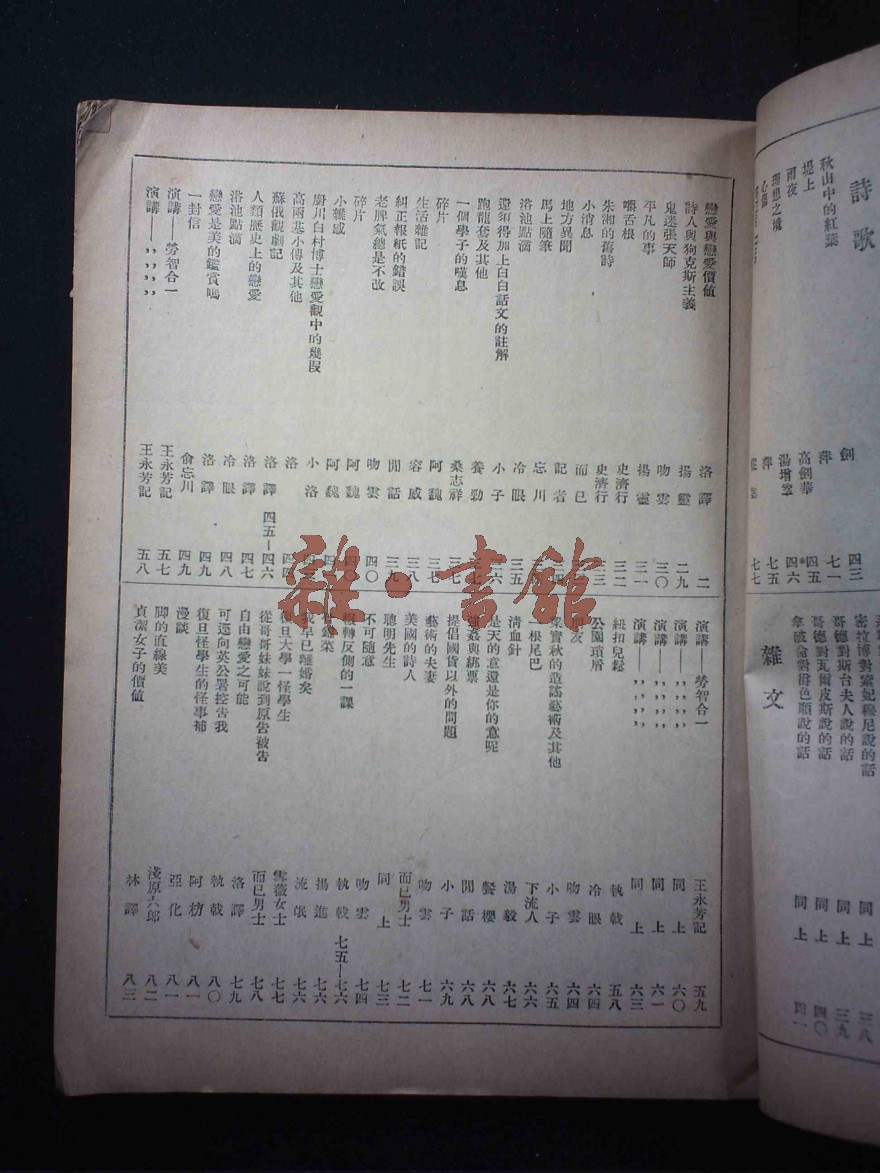 詩歌
秋山中的紅葉 劍 四三
堤上 萍 七一
雨夜 高劍華 四五
理想之城 湯增敭 四六
萍 七五
七七
密拉博對塞妃穆尼說的話 同上 三八
哥德對斯台夫人說的話 同上 三九
哥德對瓦爾皮斯說的話 同上 四〇
拿破侖對俗色順說的話 同上 四一
雜文
戀愛與戀愛價値 洛譯 二
詩人與狗克斯主義 揚靈 二九
鬼迷張天師 吻雲 三〇
平凡的事 揚靈 三一
嚼舌根 史濟行 三二
朱湘的舊詩 史濟行 三三
小消息 而已
地方異聞 記者
馬上隨筆 忘川
浴池點滴 冷眼 三五
還須得加上白白話文的註解 小子
跑龍套及其他 養勁
一個學子的嘆息 桑志祥 三七
碎片 阿魏 三七
生活雜記 容威 三八
糾正報紙的錯誤 閒話 三九
老脾氣總是不改 吻雲 四〇
碎片 阿魏
小雜感 阿魏
廚川白村博士戀愛觀中的幾段 小洛
高爾基小傳及其他 洛 四四
蘇俄觀劇記 洛譯 四五—四六
人類歷史上的戀愛 洛譯 四七
浴池點滴 冷眼 四八
戀愛是美的鑑賞嗎 洛譯 四九
一封信 兪忘川 四九
演講——勞智合一 王永芳記 五七
演講——,,,, 王永芳記 五八
演講——勞智合一 王永芳記 五九
演講——,,,, 同上 六〇
演講——,,,, 同上 六一
演講——,,,, 同上 六三
紐扣兒鬆 執戟 五八
公園瑣屑 冷眼 六四
朋友 吻雲 六四
梁實秋的造謠藝術及其他 小子 六五
一根尾巴 下流人 六六
淸血針 湯毅 六七
是天的意還是你的意呢 餐櫻 六八
強姦與綁票 閒話 六八
提倡國貨以外的問題 小子 六九
藝術的夫妻 吻雲 七一
美國的詩人 而已男士 七二
聰明先生 同上 七三
不可隨意 吻雲 七四
輾轉反側的一課 執戟 七五—七六
揚進 七六
我早已離婚矣 流氓 七六
復旦大學一怪學生 雪薇女士 七七
從哥哥妹妹說到原告被告 而已男士 七八
自由戀愛之可能 洛譯 七九
可逕向英公署控告我 執戟 八〇
復旦怪學生的怪事補 阿枋 八一
漫談 亞化 八一
脚的直線美 淺原六郎 八二
貞潔女子的價値 林譯 八三
雜·書館